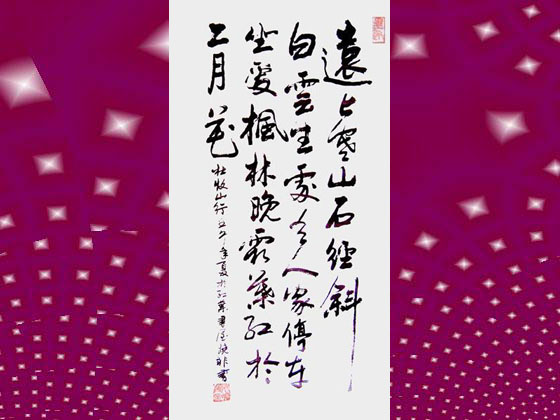 遠上寒山石徑斜
白雲生處有人家停車
坐愛楓林晚霜葉紅於
二月花
杜牧山行